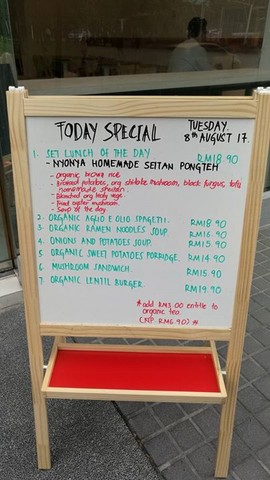 TODAY SPECIAL
TUESDAY.
8th AUGUST 17.
1. SET LUNCH OF THE DAY RM18.90
- NYONYA HOMEMADE SEITAN PONGTEH
- organic brown rice
- Braised potatoes, org shiitake mushroom, black fungus, tofu
homemade seitan.
- Blanched org leafy vege.
- Fried oyster mushroom.
- Soup of the day
2. ORGANIC AGLIO E OLIO SPAGETTI. RM18.90
3. ORGANIC RAMEN NOODLES SOUP. RM16.90
4. ONIONS AND POTATOES SOUP. RM15.90
5. ORGANIC SWEET POTATOES PORRIDGE. RM14.90
6. MUSHROOM SANDWICH. RM15.90
7. ORGANIC LENTIL BURGER. RM19.90
*add RM3.00 entitle to
organic tea
(N.P. RM6.90) *